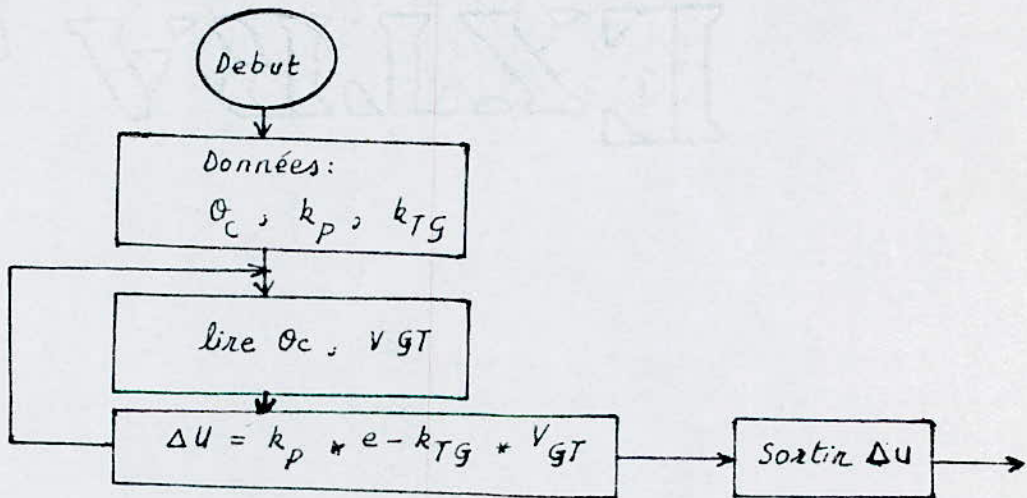 Debut
Données:
θ_C , k_P , k_TG
lire θc , V GT
ΔU = k_P * e - k_TG * V_GT
Sortir ΔU